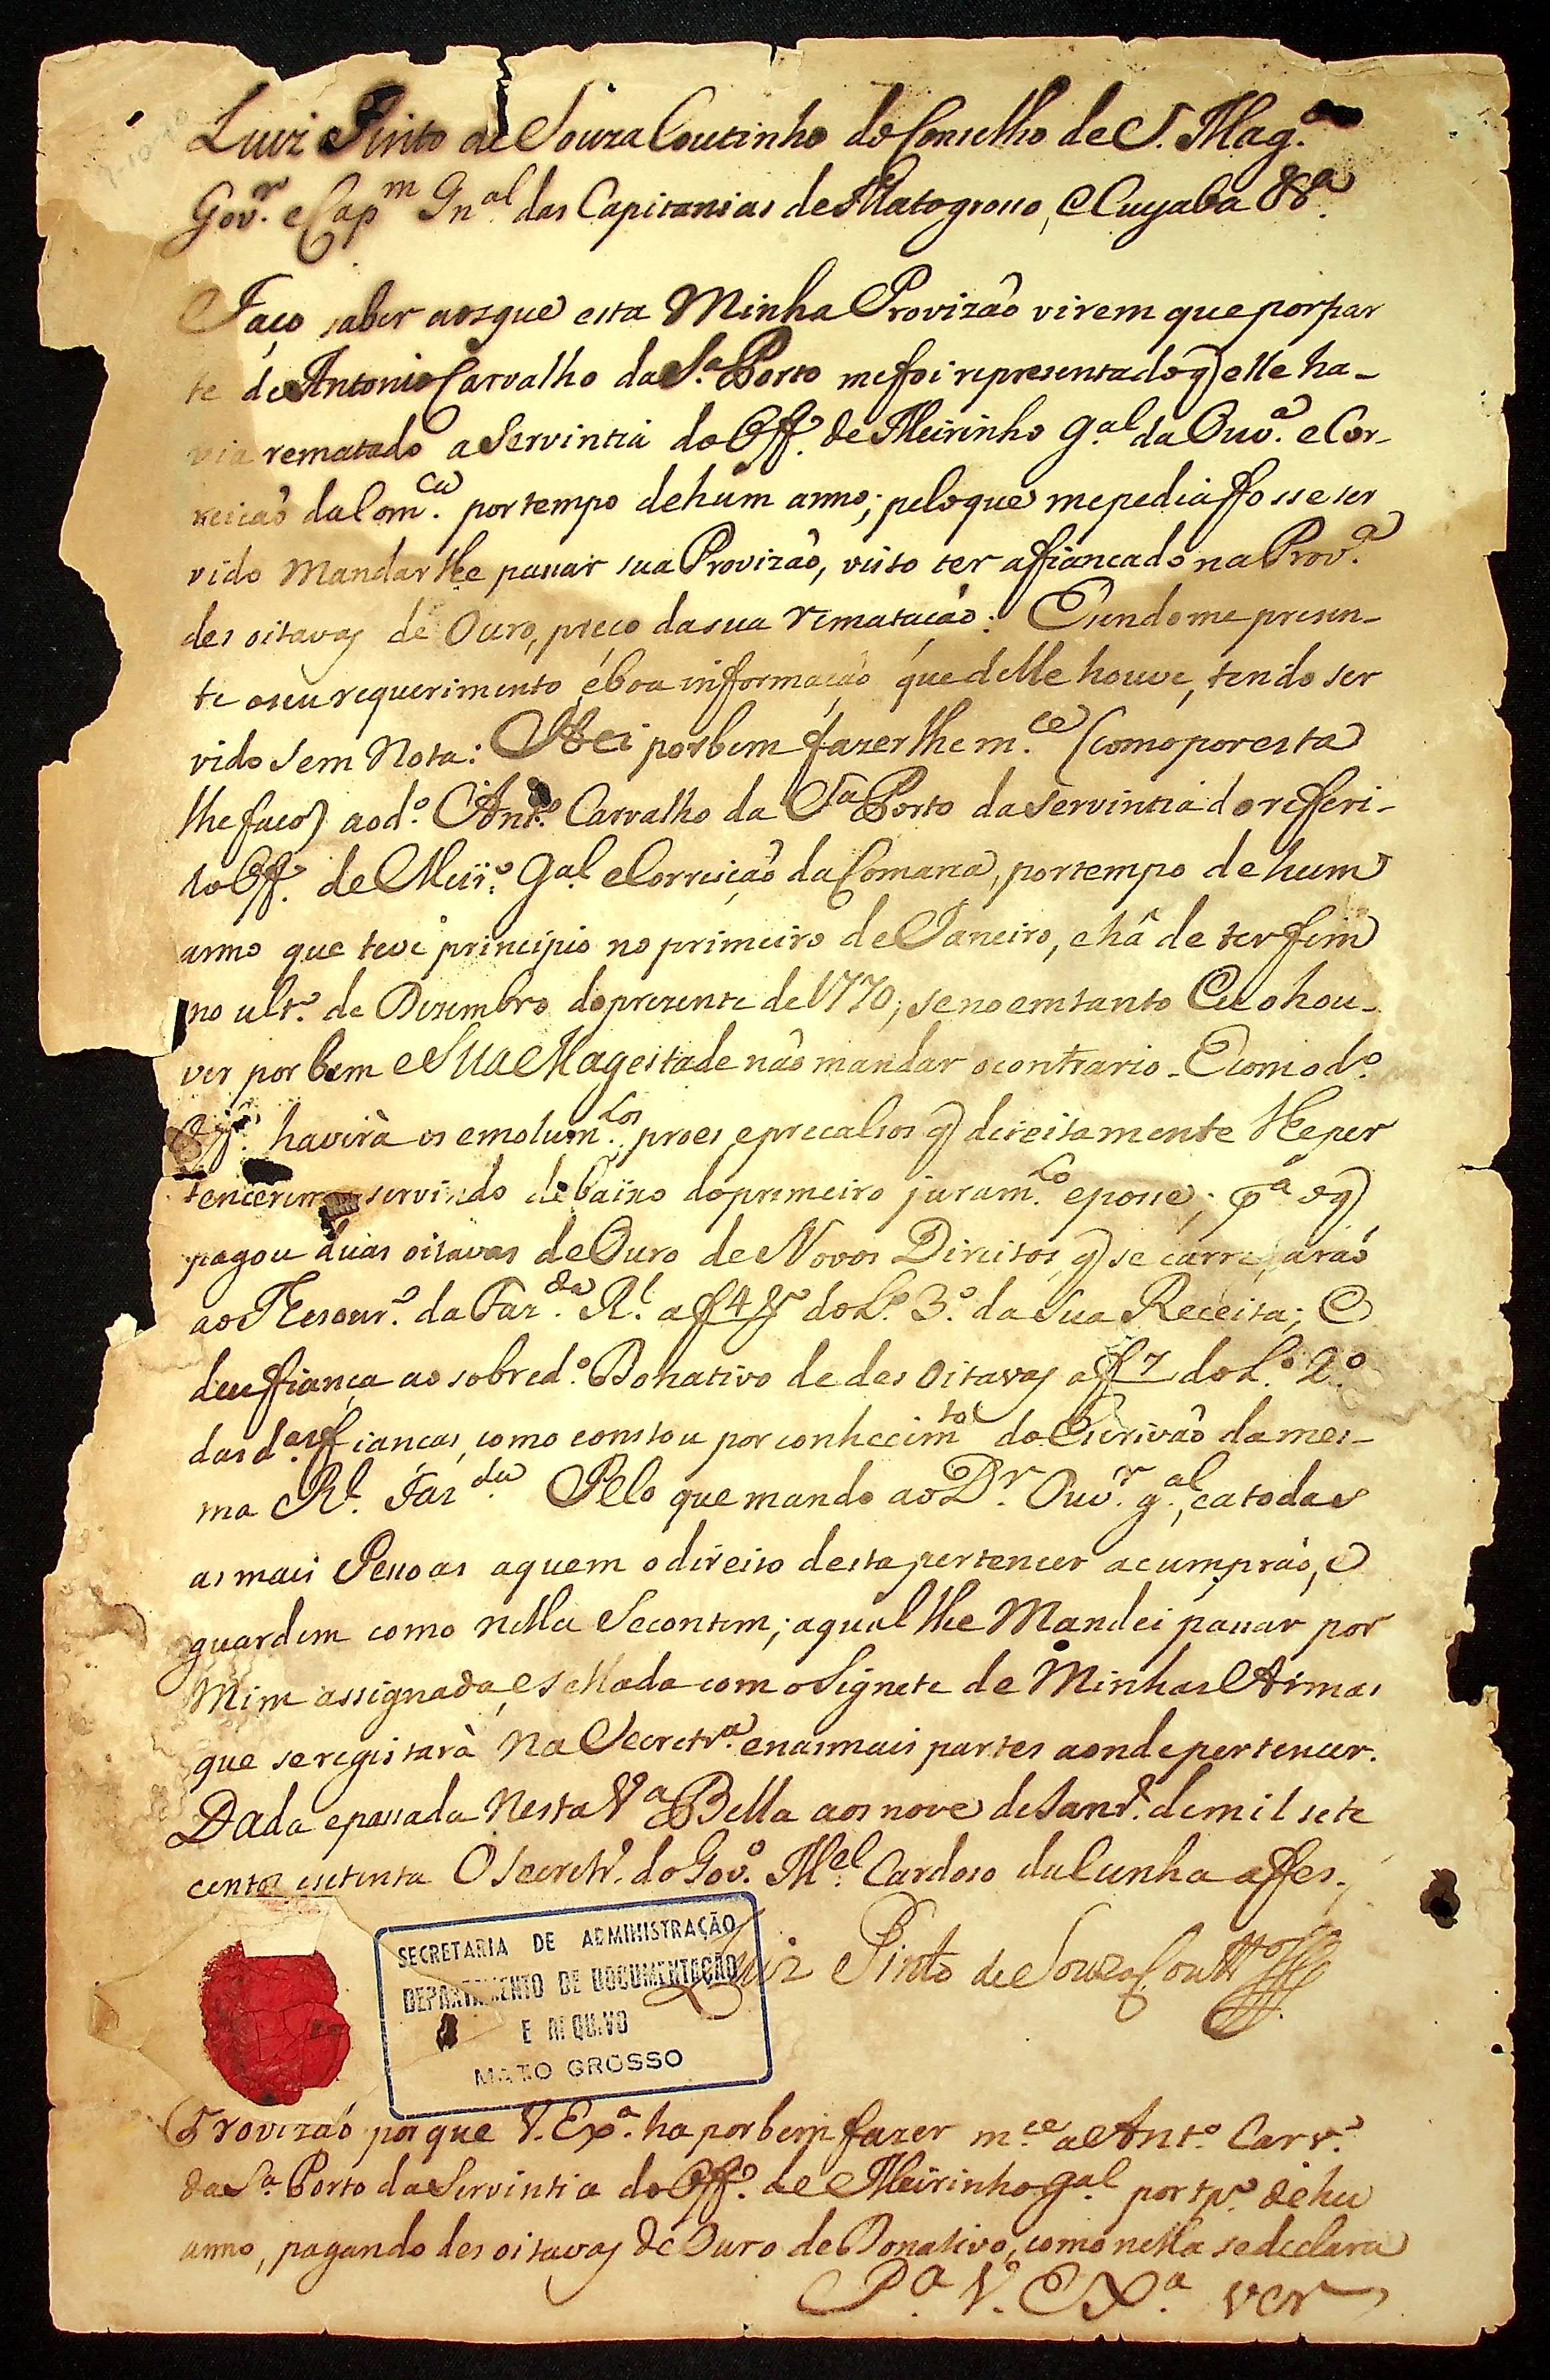 Luiz Pinto de Souza Coutinho do Conselho de S. Mag.e
Gov.r e Cap.m Gn.al das Capitanias de Matogrosso, e Cuyaba &.a
Faço saber aos que esta Minha Provizaõ virem que por par
te de Antonio Carvalho da S.a Porto me foi reprezentado q elle ha-
via rematado a Serventia do Off.o de Meirinho g.al da Ouv.a e Cor-
reicaõ da Com.ca por tempo de hum anno; pelo que me pedia fosse ser
vido Mandar lhe passar sua Provizaõ, visto ter afiancado na Prov.a
des oitavas de Ouro, preço da sua rematação: E sendome prezen-
te o seu requerimento, e boa informação que delle houve, tendo ser
vido sem Nota: Hei por bem fazer lhe m.ce (como por esta
lhe faço) ao d.o Ant.o Carvalho da S.a Porto da Serventia do refferi-
do Off.o de Meir.o G.al e Correiçaõ da Comarca, por tempo de hum
anno que teve principio no primeiro de Janeiro, e hâ de ter fim
no ult.o de Dezembro do prezente de 1770; se no emtanto Eu o hou-
ver por bem e Sua Magestade naõ mandar o contrario. E com o d.o
Off.o haverà os emolum.tos, proes, e precalsos q direitamente lhe per
tencerem servindo debaixo do primeiro juram.to e posse; p.a o q
pagou duas oitavas de Ouro de Novos Direitos, q se carregaraõ
ao Thezour.o da Faz.da R.l a f 4 v.o do L.o 3.o da sua Receita; E
deu fiança ao sobred.o Donativo de des Oitavas a f 7 do L.o 2.o
das d.as fianças, como constou por conhecim.to do Escrivaõ da mes-
ma R.l Faz.da Pelo que mando ao D.r Ouv.r g.al, e a todas
as mais Pessoas a quem o direito desta pertencer a cumpraõ, e
guardem como nella Se contem; a qual lhe Mandei passar por
Mim assignada, e Sellada com o Signete de Minhas Armas
que se registarà Na Secretr.a e nas mais partes aonde pertencer.
Dada e passada Nesta V.a Bella aos nove de Janr.o de mil sete
centos e setenta O Secretr.o do Gov.o M.el Cardoso da Cunha a fes.
SECRETARIA DE ADMINISTRAÇÃO
DEPARTAMENTO DE DOCUMENTAÇÃO
E ARQUIVO
MATO GROSSO
Luiz Pinto de Souza Cout.o
Provizaõ por que V. Ex.a ha por bem fazer m.ce a Ant.o Carv.o
da S.a Porto da Serventia do Off.o de Meirinho g.al por tp.o de hu
anno, pagando des oitavas de Ouro de Donativo, como nella se declara
P.a V. Ex.a ver